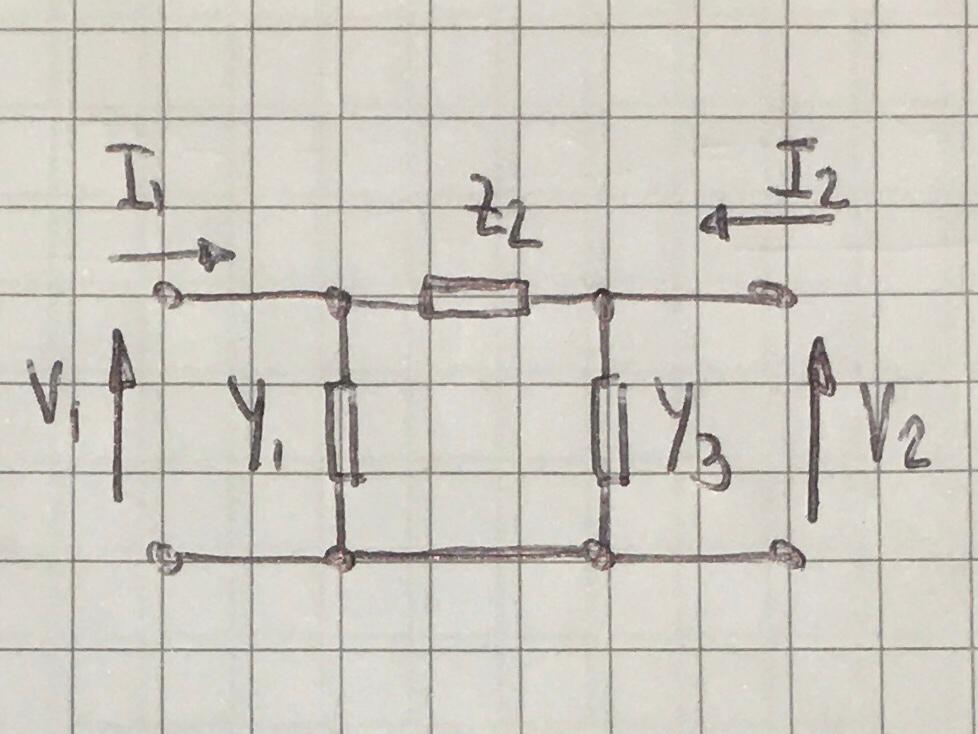 I₁
I₂
Z₂
V₁
Y₁
Y₃
V₂